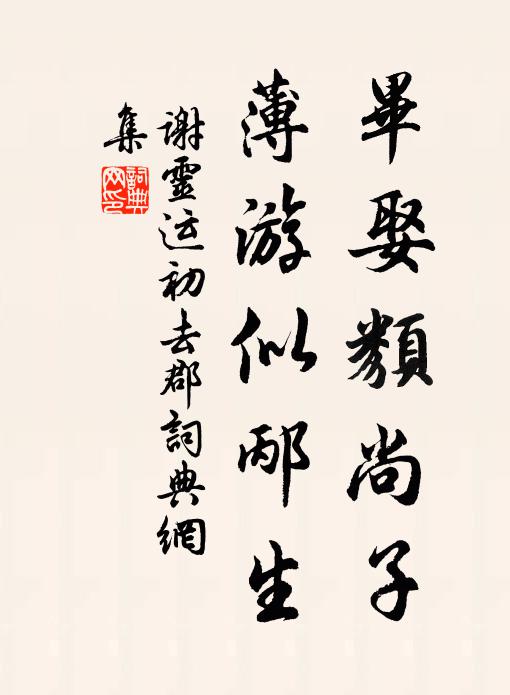 畢娶類尚子
薄游似邴生
謝靈运初去郡詞典網
集
詞典網印